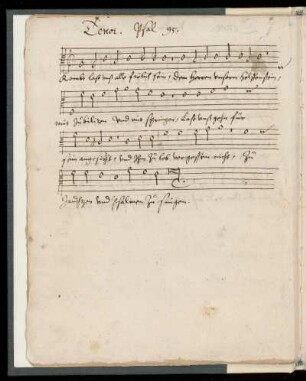 Tenor. Psal. 95.
Kombt last uns alle frölich sein, dem Herren unserm
mit Jubiliren und mit springen, last uns gehn für
sein angesicht, und Ihn zu lob vergessen nicht, Zu
Jauchzen und psalmen Zu singen.